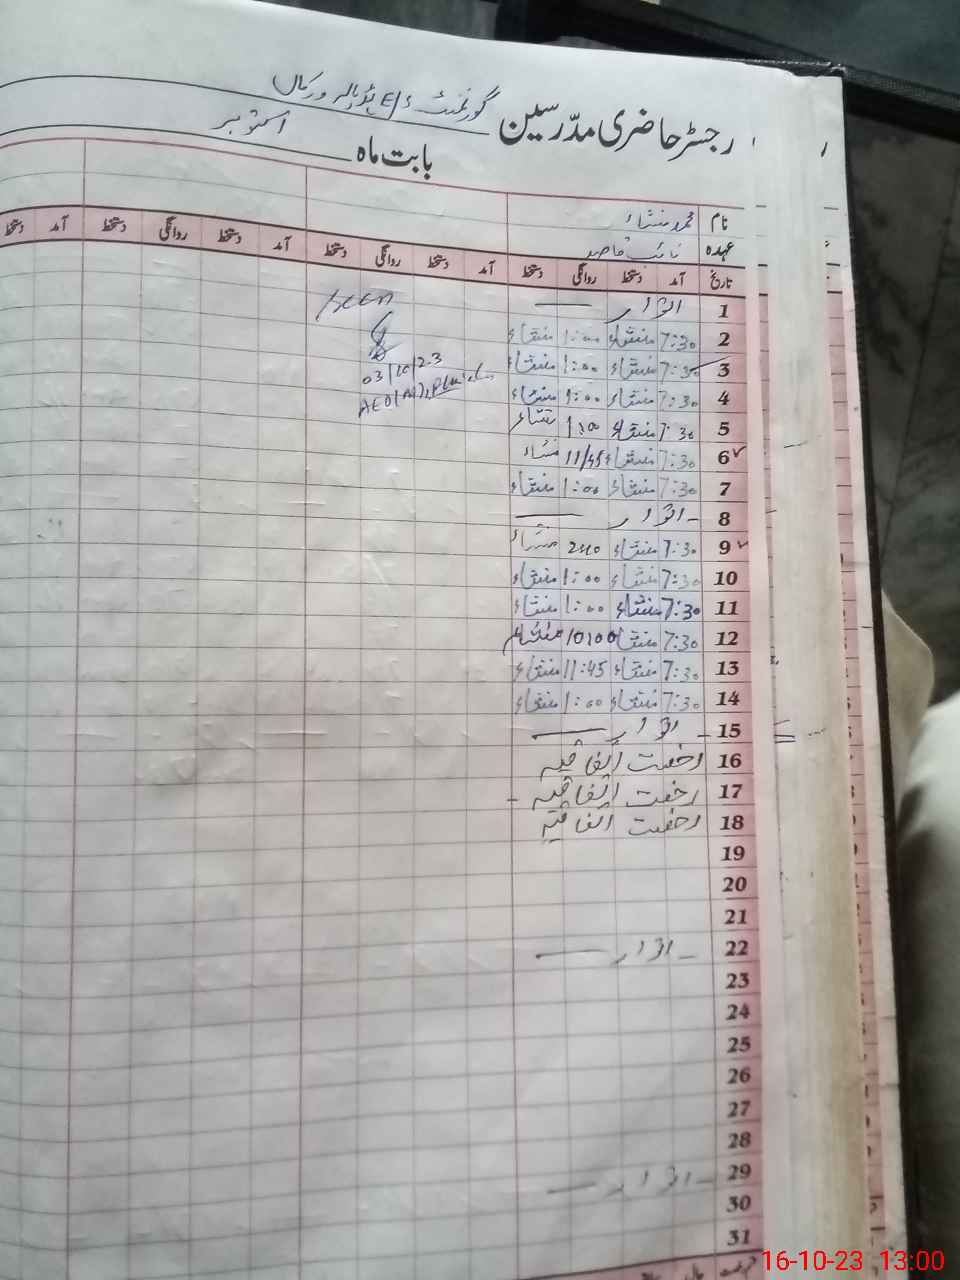 رجسٹر حاضری مدّرسین گورنمنٹ
بابت ماہ اکتوبر
نام محمد منشاء
عہدہ نائب قاصد
تاریخ آمد دستخط روانگی دستخط آمد دستخط روانگی دستخط آمد دستخط روانگی دستخط آمد دستخط
1 اتوار Seen
2 7:30 منشاء 1:00 منشاء
3 7:30 منشاء 1:00 منشاء 03/10/23
4 7:30 منشاء 1:00 منشاء AEO(M)
5 7:30 منشاء 1:00 منشاء
6 7:30 منشاء 11/45 منشاء
7 7:30 منشاء 1:00 منشاء
8 اتوار
9 7:30 منشاء منشاء
10 7:30 منشاء 1:00 منشاء
11 7:30 منشاء 1:00 منشاء
12 7:30 منشاء 10:00 منشاء
13 7:30 منشاء 11:45 منشاء
14 7:30 منشاء 1:00 منشاء
15 اتوار
16 رخصت اتفاقیہ
17 رخصت اتفاقیہ
18 رخصت اتفاقیہ
19
20
21
22 اتوار
23
24
25
26
27
28
29 اتوار
30
31
16-10-23 13:00